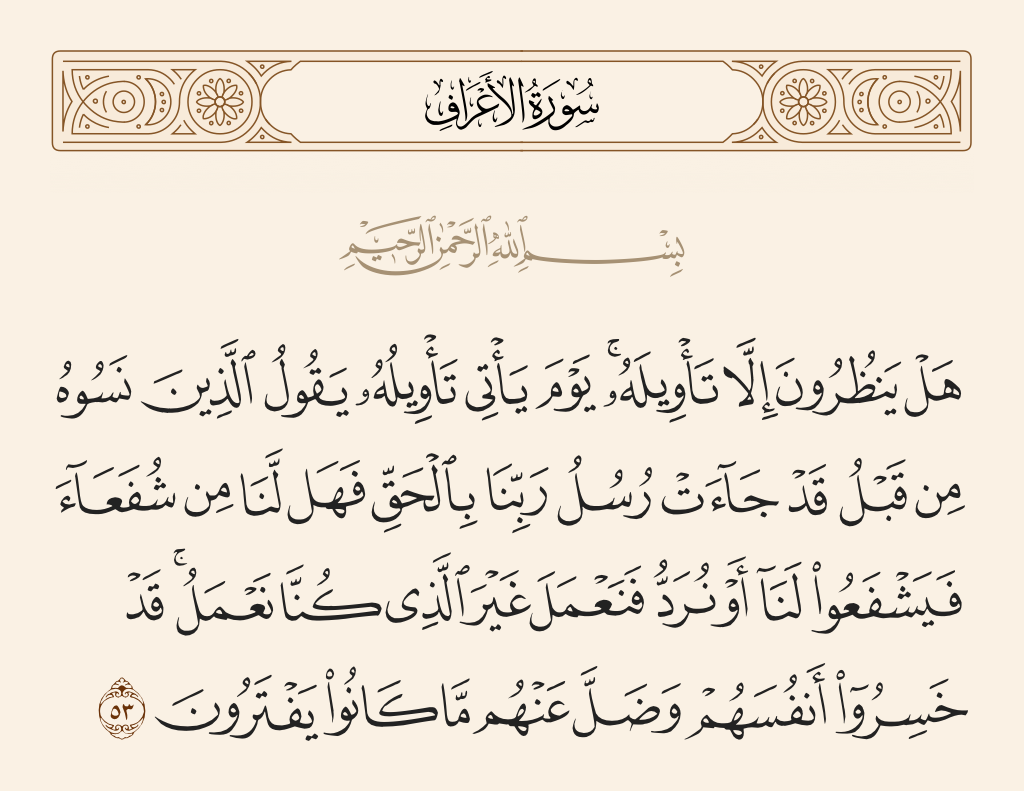 سُورَةُ الأَعْرَافِ
بِسْمِ ٱللَّهِ ٱلرَّحْمَٰنِ ٱلرَّحِيمِ
هَلْ يَنظُرُونَ إِلَّا تَأْوِيلَهُۥ ۚ يَوْمَ يَأْتِى تَأْوِيلُهُۥ يَقُولُ ٱلَّذِينَ نَسُوهُ
مِن قَبْلُ قَدْ جَآءَتْ رُسُلُ رَبِّنَا بِٱلْحَقِّ فَهَل لَّنَا مِن شُفَعَآءَ
فَيَشْفَعُوا۟ لَنَآ أَوْ نُرَدُّ فَنَعْمَلَ غَيْرَ ٱلَّذِى كُنَّا نَعْمَلُ ۚ قَدْ
خَسِرُوٓا۟ أَنفُسَهُمْ وَضَلَّ عَنْهُم مَّا كَانُوا۟ يَفْتَرُونَ ٥٣